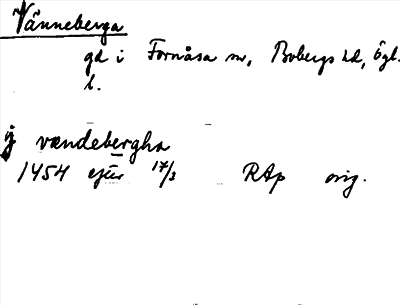 Vänneberga
gd i Fornåsa sn, Bobergs hd, Ögl.
l.
j vændebergha
1454 efter 17/3 RAp orig.